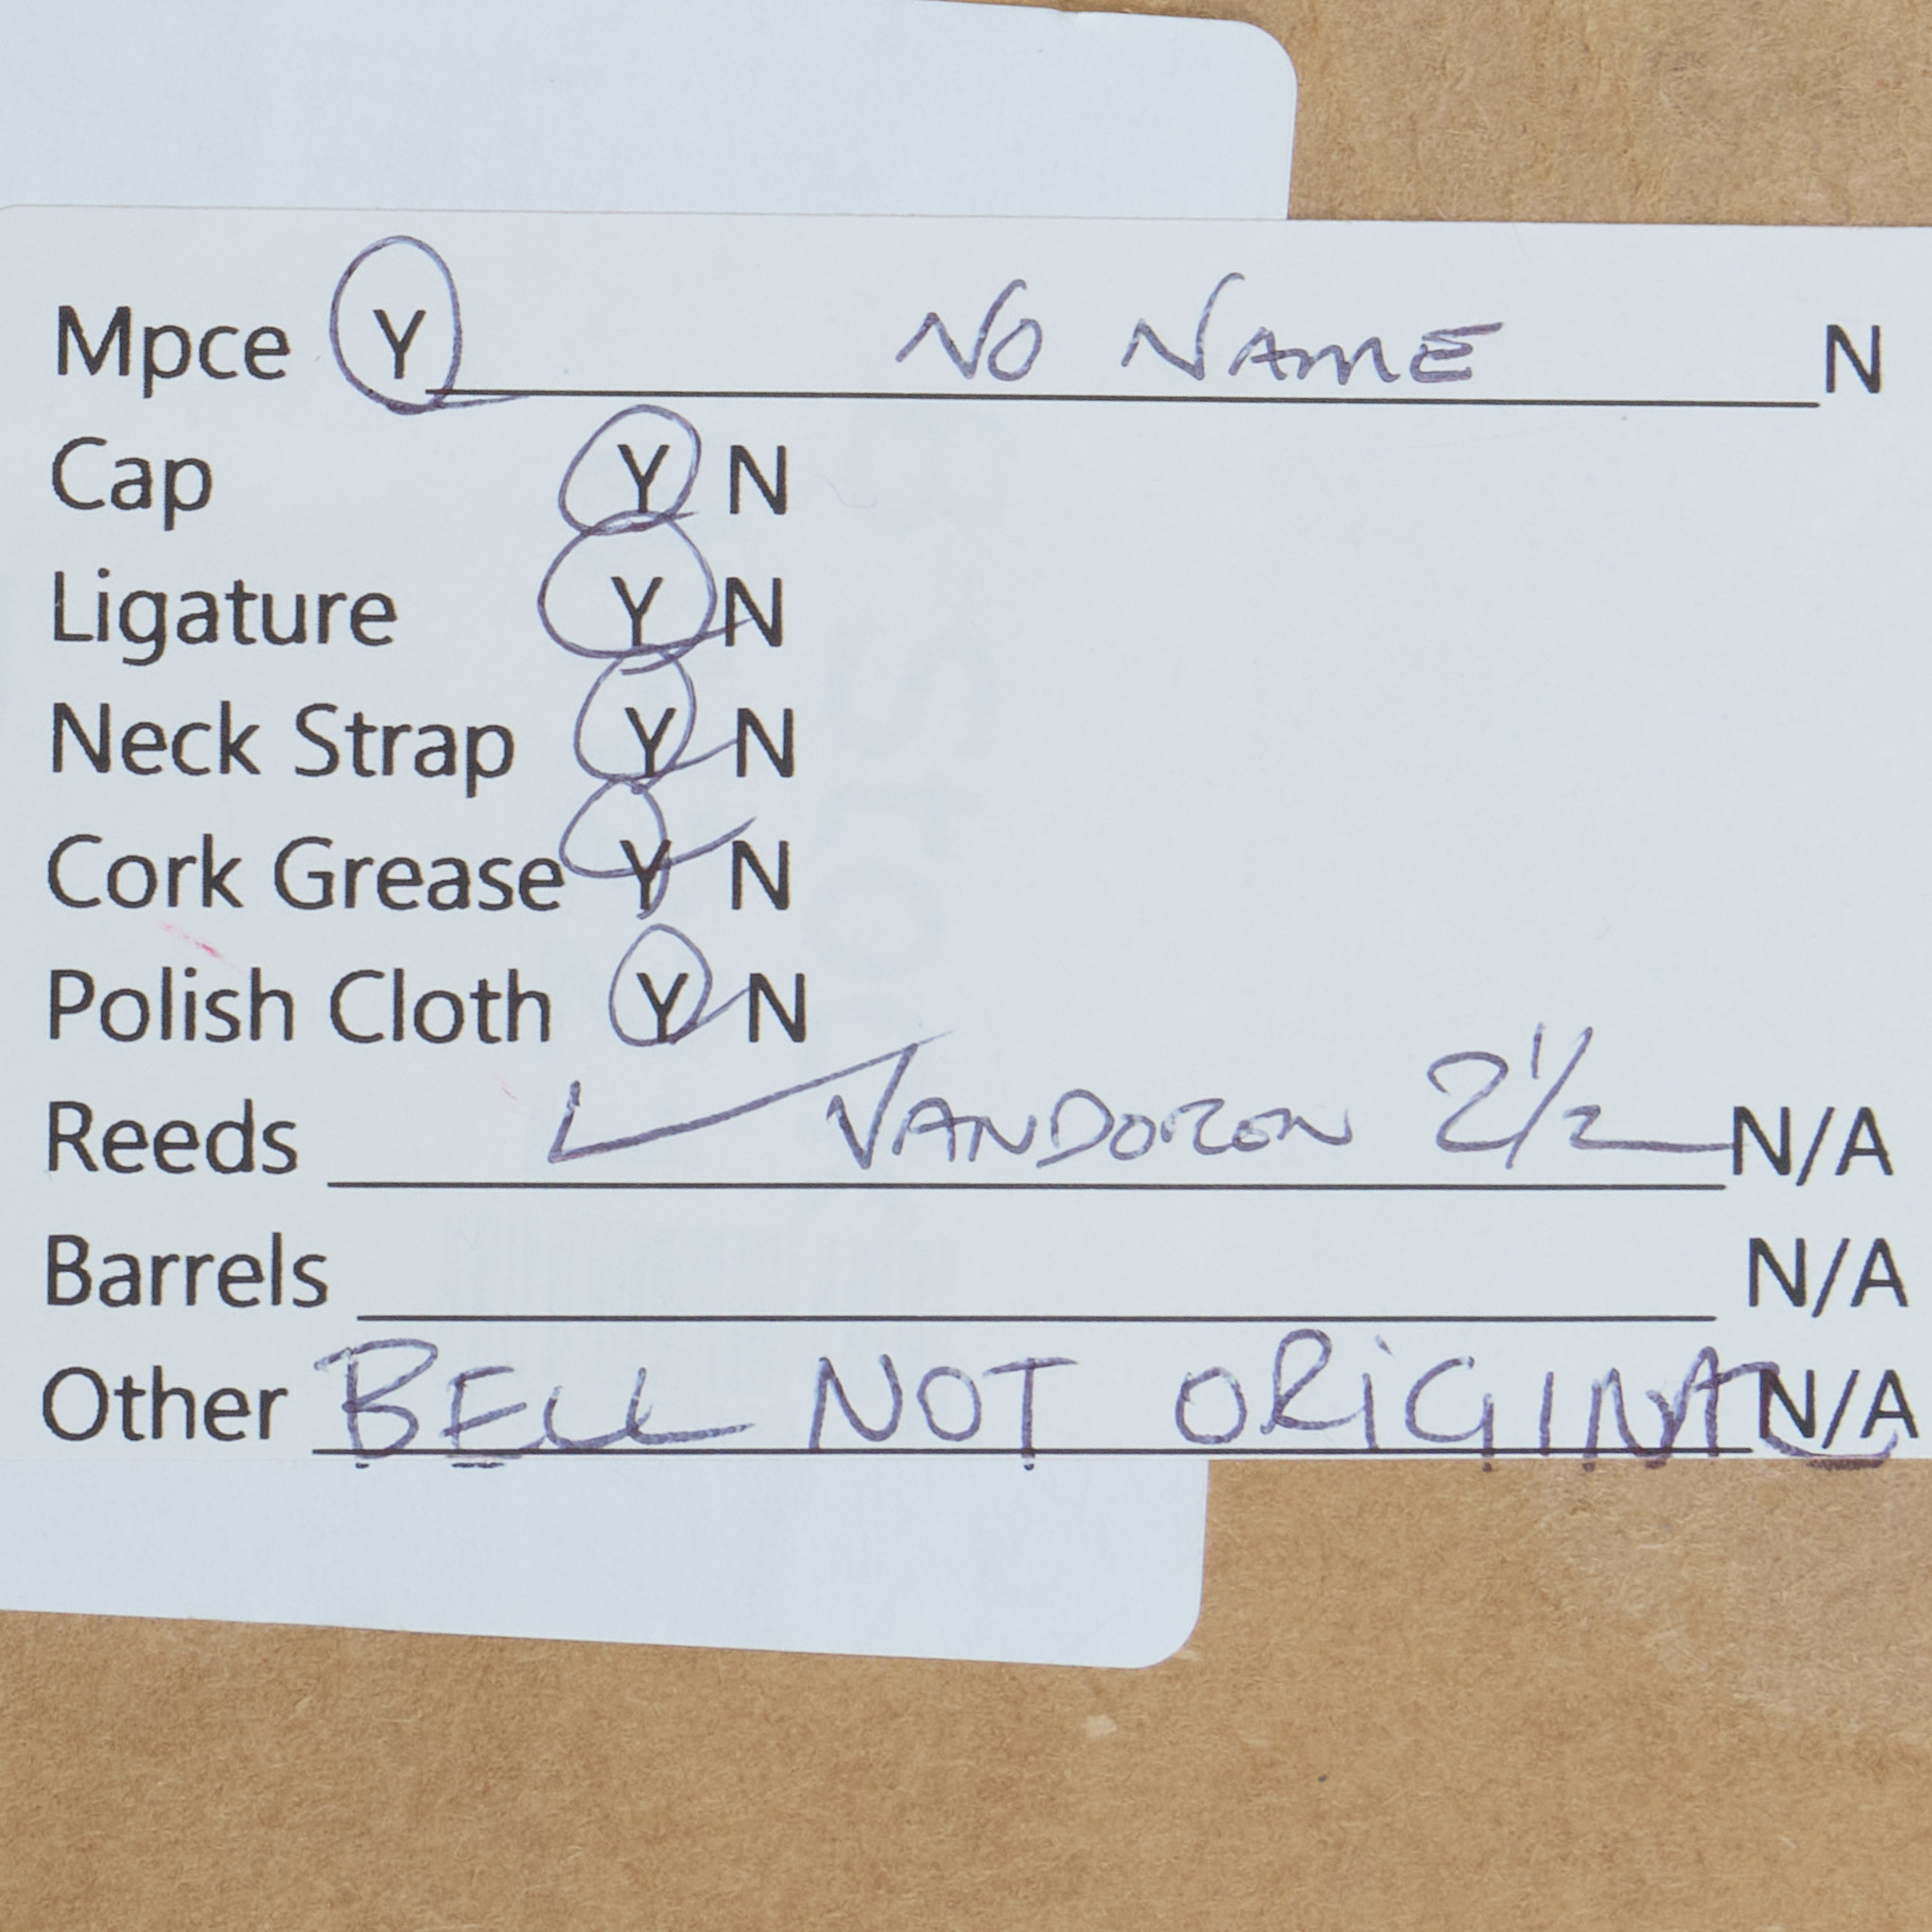 Mpce Y NO NAME N
Cap Y N
Ligature Y N
Neck Strap Y N
Cork Grease Y N
Polish Cloth Y N
Reeds VANDOREN 2 1/2 N/A
Barrels N/A
Other BELL NOT ORIGINAL N/A